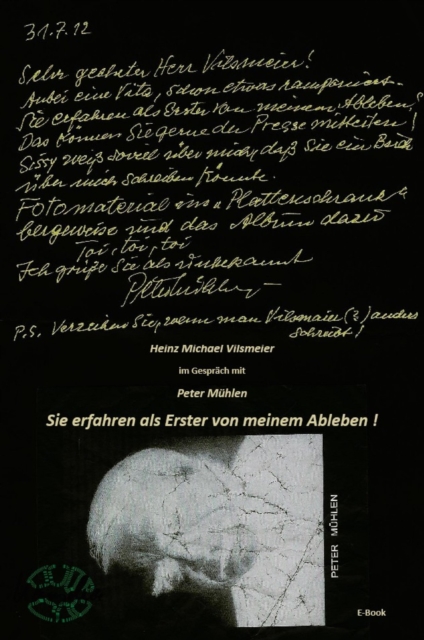 31.7.12
Sehr geehrter Herr Vilsmeier!
Anbei eine Vita, schon etwas ramponiert.
Sie erfahren als Erster von meinem Ableben,
Das können Sie gerne der Presse mitteilen!
Sissy weiß soviel über mich, daß Sie ein Buch
über mich schreiben könnte.
Fotomaterial im "Plattenschrank"
bergeweise und das Album dazu
Toi, toi, toi
Ich grüße Sie als unbekannt
Peter Mühlen
P.S. Verzeihen Sie, wenn man Vilsmaier (?) anders
schreibt!
Heinz Michael Vilsmeier
im Gespräch mit
Peter Mühlen
Sie erfahren als Erster von meinem Ableben !
PETER MÜHLEN
E-Book